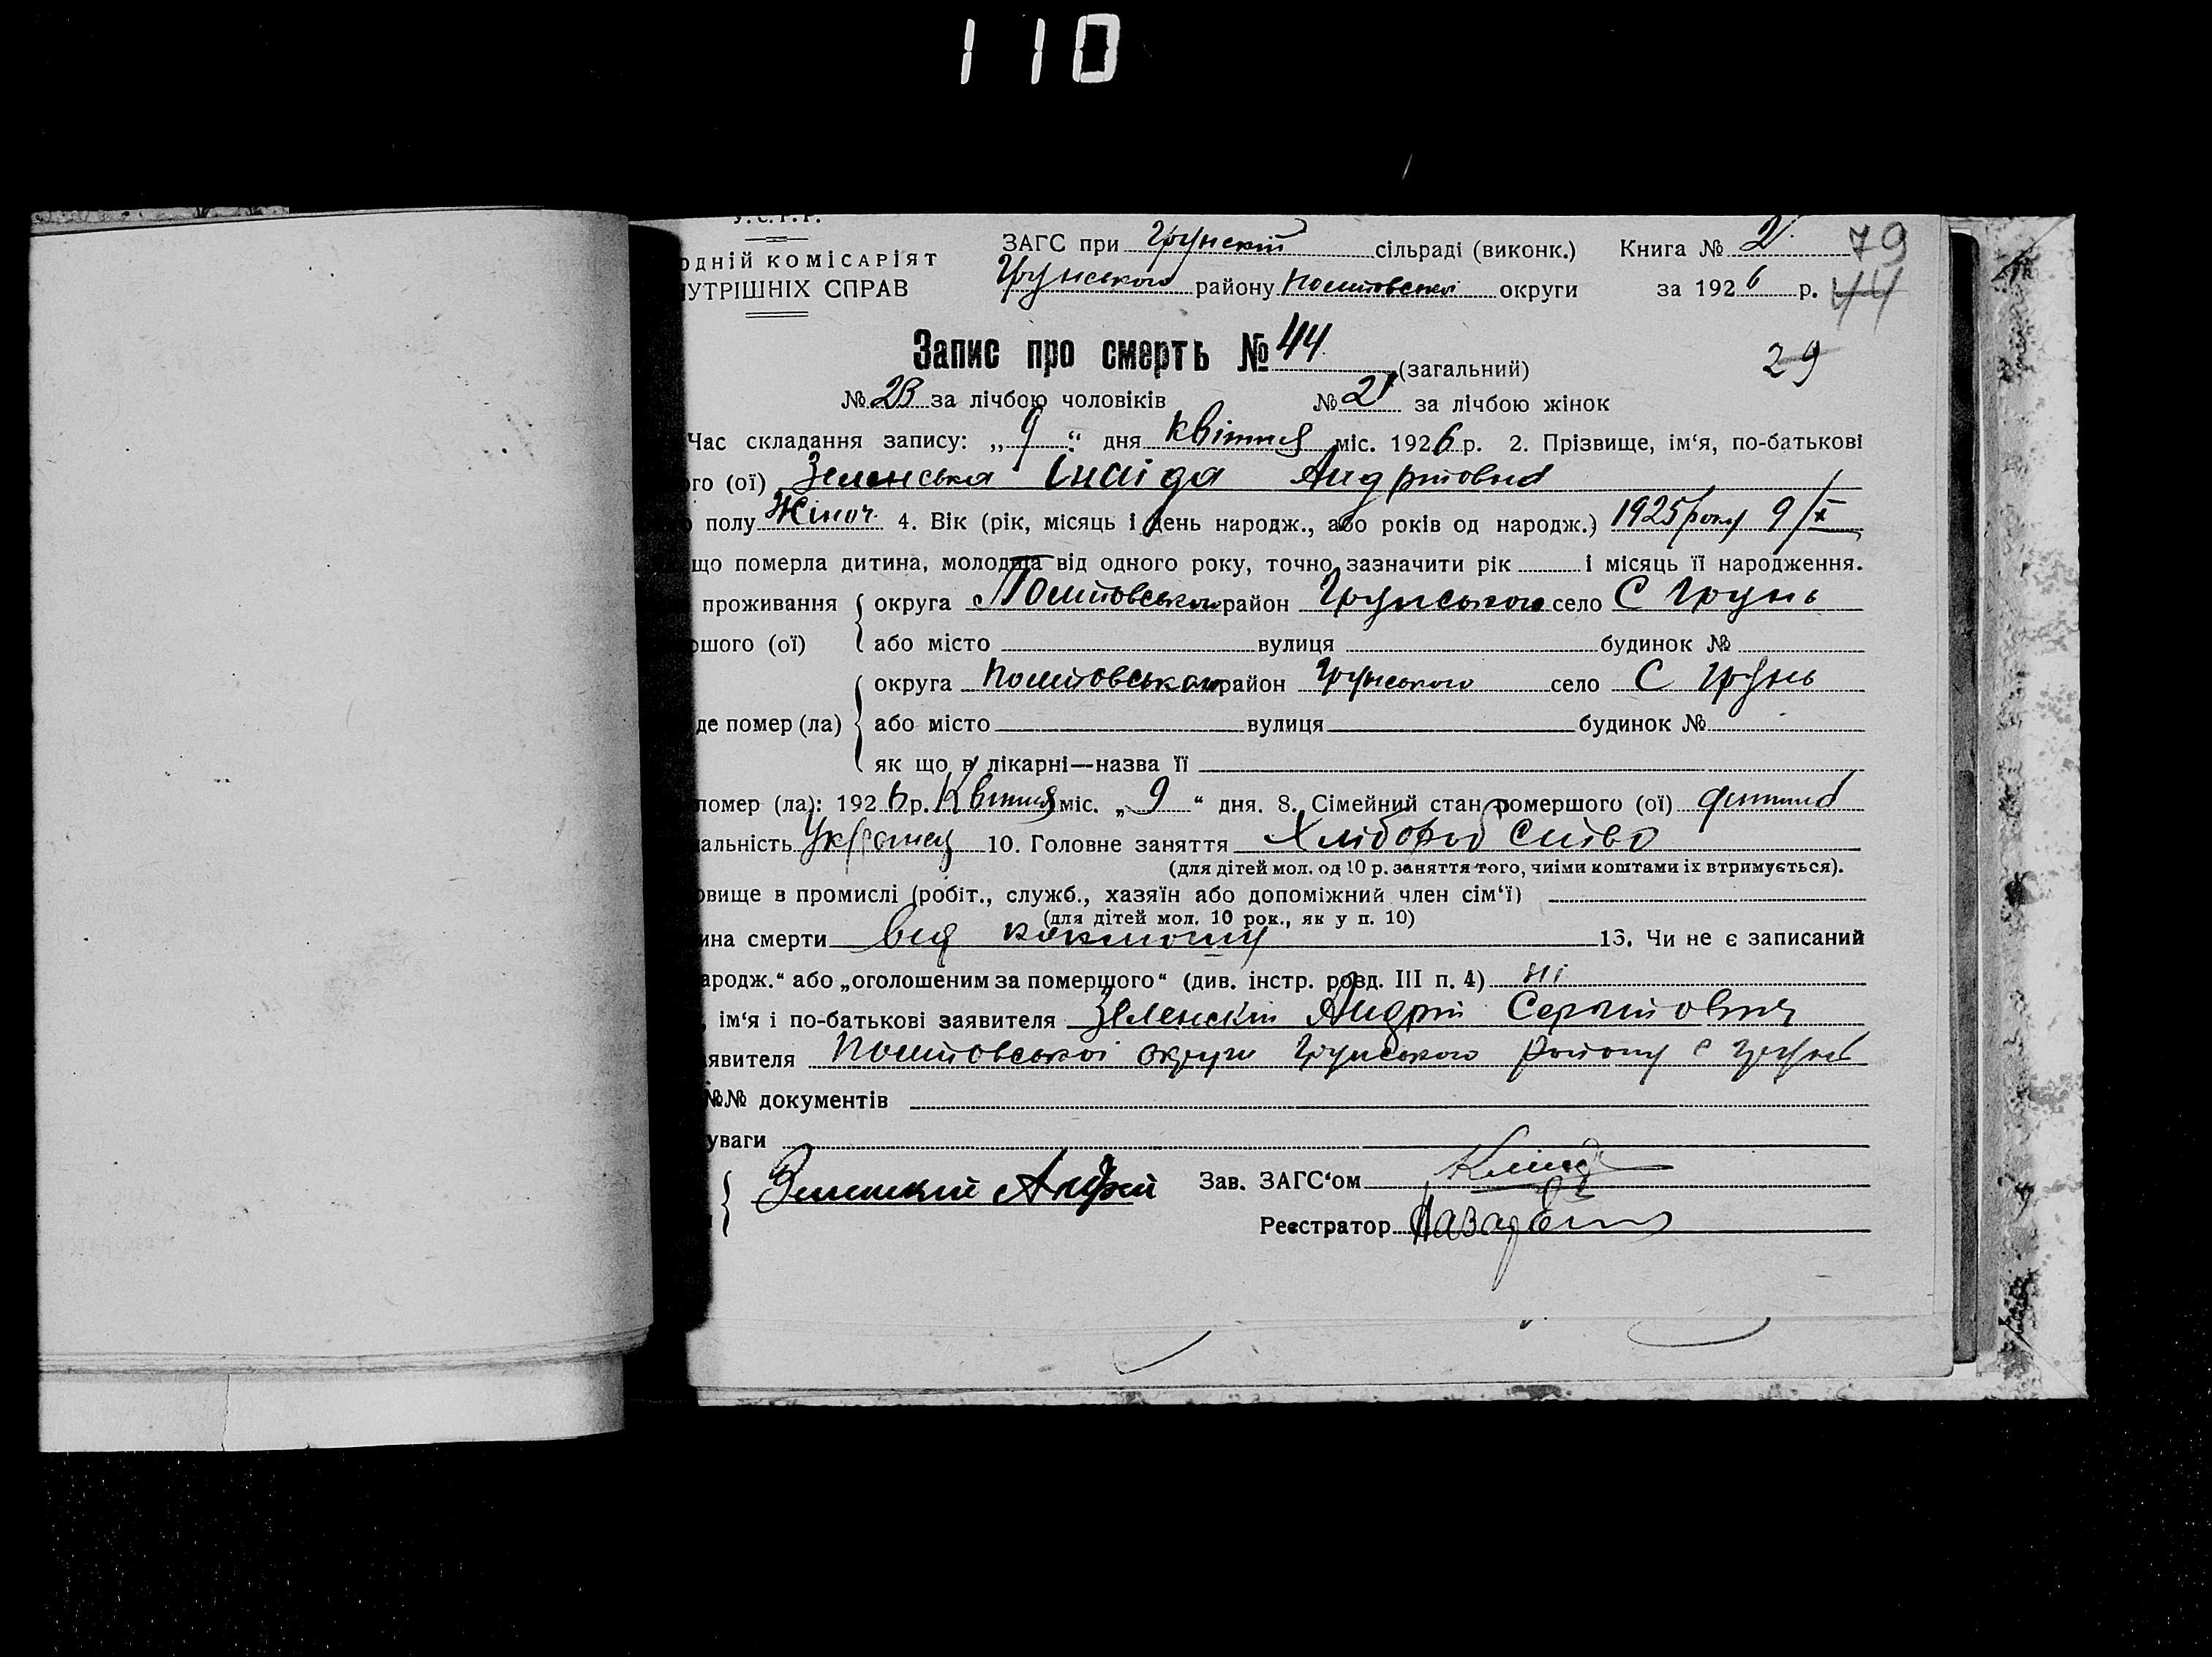 110
У.С.Р.Р.
одній комісаріят
нутрішніх справ
ЗАГС при Грунскій сільраді (виконк.) Книга № 2
Грунського району Полтовської округи за 1926 р.
79
44
Запис про смерть № 44 (загальний)
29
№ 23 за лічбою чоловіків № 21 за лічбою жінок
Час складання запису: „9“ дня Квітня міс. 1926 р. 2. Прізвище, ім‘я, по-батькові
го (ої) Зеленська Андрійовна
полу Жіноч. 4. Вік (рік, місяць і день народж., або років од народж.) 1925 року 9/X
що померла дитина, молодша від одного року, точно зазначити рік і місяць її народження.
проживання округа Полтовського район Грунського село С Грунь
ршого (ої) або місто вулиця будинок №
округа Полтовського район Грунського село С Грунь
де помер (ла) або місто вулиця будинок №
як що в лікарні—назва її
помер (ла): 1926 р. Квітня міс. „9“ дня. 8. Сімейний стан помершого (ої) дитина
альність Украінец 10. Головне заняття Хліборобство
(для дітей мол. од 10 р. заняття того, чиїми коштами їх втримується).
овище в промислі (робіт., служб., хазяїн або допоміжний член сім‘ї)
(для дітей мол. 10 рок., як у п. 10)
ина смерти від коклюшу 13. Чи не є записаний
ародж.“ або „оголошеним за помершого“ (див. інстр. розд. III п. 4) ні
, ім‘я і по-батькові заявителя Зеленскій Андрій Сергійович
аявителя Полтовської округи Грунського району с Грунь
№№ документів
уваги
Зеленский Андрей Зав. ЗАГС‘ом
Реєстратор